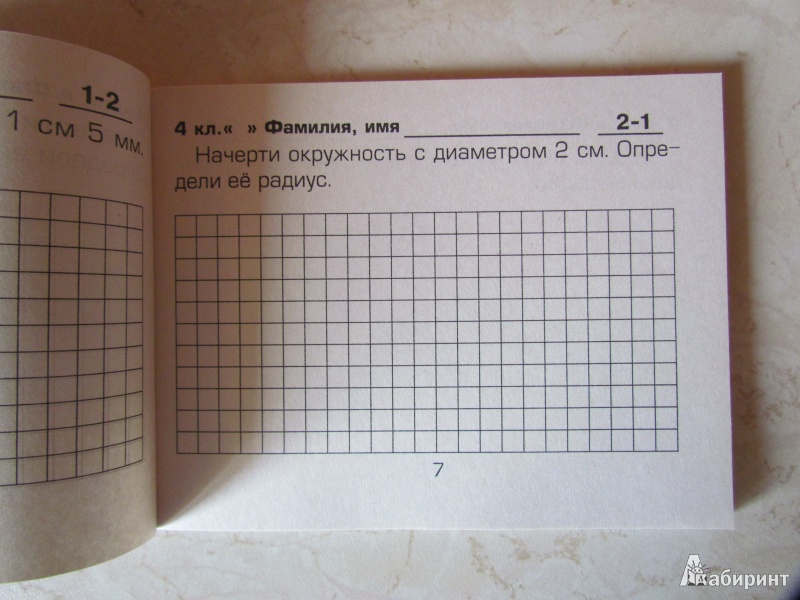 1-2
1 см 5 мм.
4 кл.« » Фамилия, имя 2-1
Начерти окружность с диаметром 2 см. Опре-
дели её радиус.
7
Лабиринт